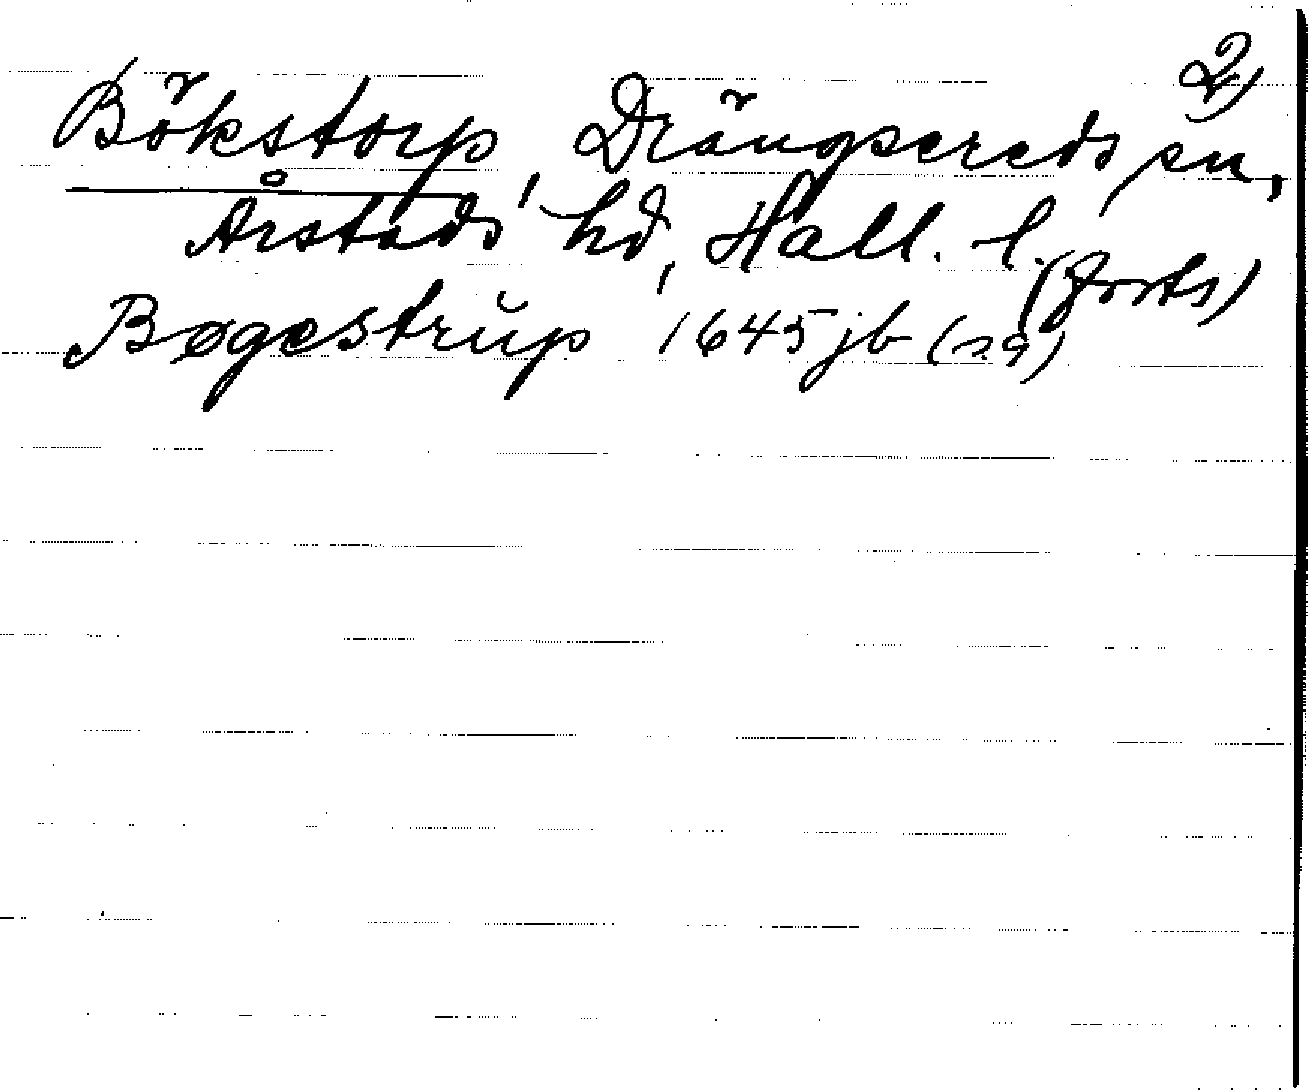 2)
Bökstorp, Drängsereds sn,
Årstads hd, Hall. l.
(forts)
Bøgestrup 1645 jb (29)